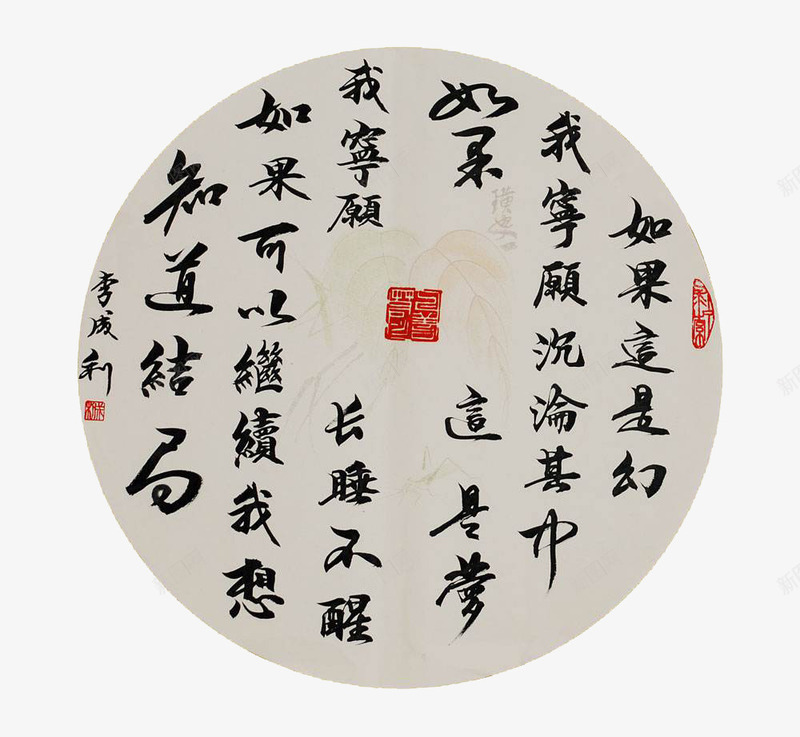 如果這是幻
我寧願沉淪其中
如果這是夢
我寧願长睡不醒
如果可以繼續我想
知道結局
李成利